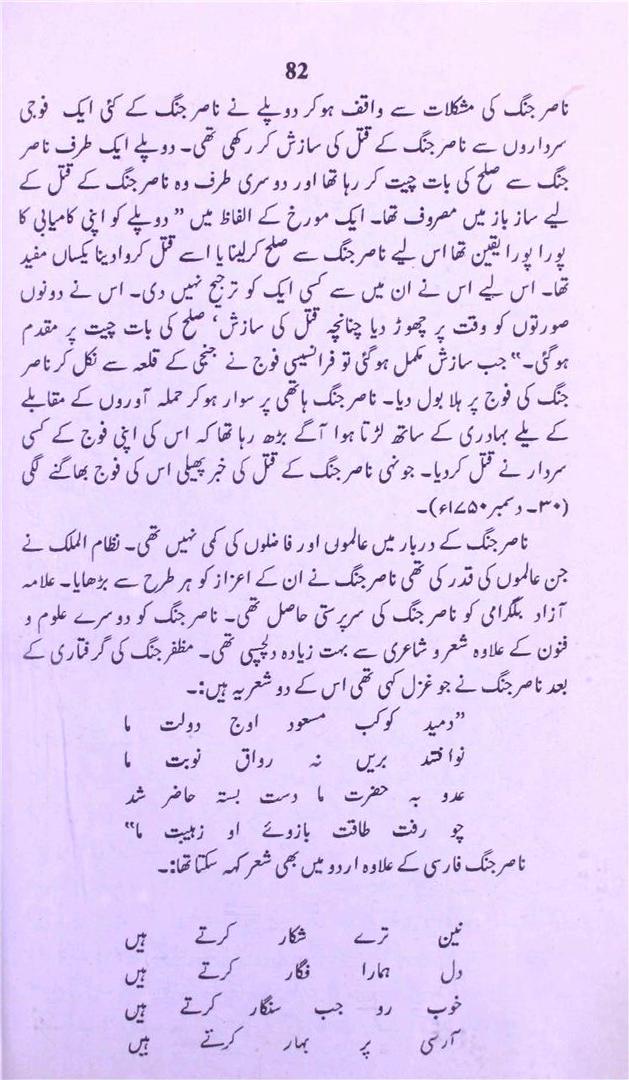 82
ناصر جنگ کی مشکلات سے واقف ہوکر دوپلے نے ناصر جنگ کے کئی ایک فوجی
سرداروں سے ناصر جنگ کے قتل کی سازش کر رکھی تھی۔ دوپلے ایک طرف ناصر
جنگ سے صلح کی بات چیت کر رہا تھا اور دوسری طرف وہ ناصر جنگ کے قتل کے
لیے ساز باز میں مصروف تھا۔ ایک مورخ کے الفاظ میں ”دوپلے کو اپنی کامیابی کا
پورا پورا یقین تھا اس لیے ناصر جنگ سے صلح کرلینا یا اسے قتل کروادینا یکساں مفید
تھا۔ اس لیے اس نے ان میں سے کسی ایک کو ترجیح نہیں دی۔ اس نے دونوں
صورتوں کو وقت پر چھوڑ دیا چنانچہ قتل کی سازش‘ صلح کی بات چیت پر مقدم
ہوگئی۔“ جب سازش مکمل ہوگئی تو فرانسیسی فوج نے جنجی کے قلعہ سے نکل کر ناصر
جنگ کی فوج پر ہلا بول دیا۔ ناصر جنگ ہاتھی پر سوار ہوکر حملہ آوروں کے مقابلے
کے یلے بہادری کے ساتھ لڑتا ہوا آگے بڑھ رہا تھا کہ اس کی اپنی فوج کے کسی
سردار نے قتل کردیا۔ جونہی ناصر جنگ کے قتل کی خبر پھیلی اس کی فوج بھاگنے لگی
(۳۰۔ دسمبر ۱۷۵۰ء)۔
ناصر جنگ کے دربار میں عالموں اور فاضلوں کی کمی نہیں تھی۔ نظام الملک نے
جن عالموں کی قدر کی تھی ناصر جنگ نے ان کے اعزاز کو ہر طرح سے بڑھایا۔ علامہ
آزاد بلگرامی کو ناصر جنگ کی سرپرستی حاصل تھی۔ ناصر جنگ کو دوسرے علوم و
فنون کے علاوہ شعر و شاعری سے بہت زیادہ دلچسپی تھی۔ مظفر جنگ کی گرفتاری کے
بعد ناصر جنگ نے جو غزل کہی تھی اس کے دو شعر یہ ہیں:۔
”دمید کوکب مسعود اوج دولت ما
نوافتند بریں نہ رواق نوبت ما
عدو بہ حضرت ما دست بستہ حاضر شد
چو رفت طاقت بازوئے او زہیبت ما“
ناصر جنگ فارسی کے علاوہ اردو میں بھی شعر کہہ سکتا تھا:۔
نین ترے شکار کرتے ہیں
دل ہمارا فگار کرتے ہیں
خوب رو جب سنگار کرتے ہیں
آرسی پر بہار کرتے ہیں